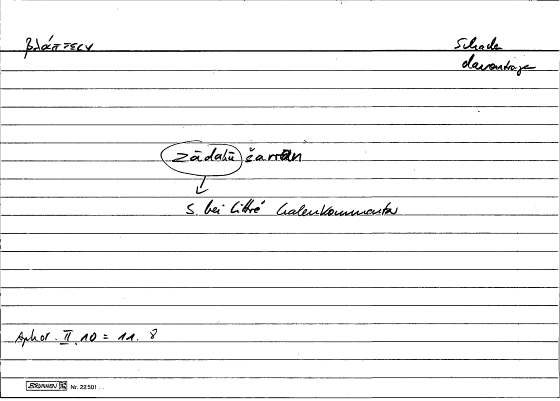 βλάπτειν
Schade
davontrage
zādahū šarran
s. bei Littré Galenkommentar
Aphor. II 10 = 11. 8
BRUNNEN Nr. 22501